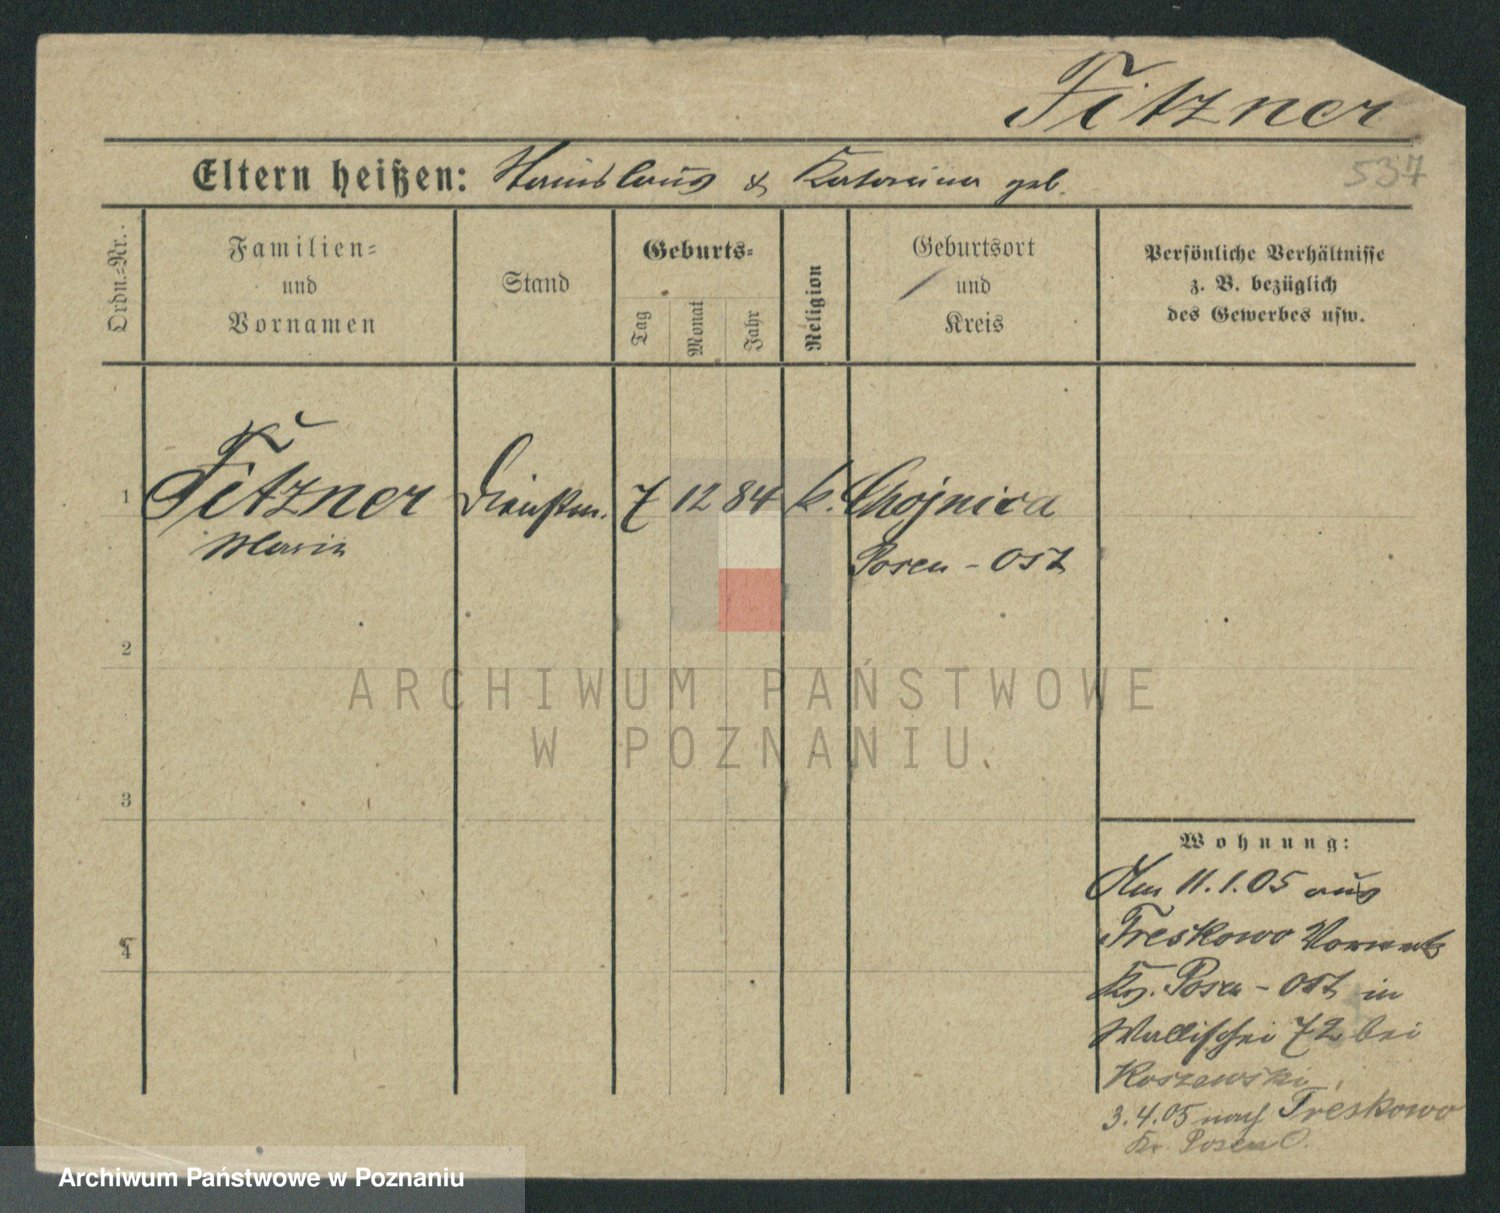 Fitzner
537
Eltern heißen: Stanislaus & Katarina geb.
Ordn.-Nr.
Familien-
und
Vornamen
Stand
Geburts-
Tag
Monat
Jahr
Religion
Geburtsort
und
Kreis
Persönliche Verhältnisse
z. B. bezüglich
des Gewerbes usw.
1 Fitzner Dienstm. 7 12 84 k. Chojnica
Maria Posen-Ost
2
3
4
Wohnung:
Am 11.1.05 aus
Treskowo Vorwerk
Kr. Posen-Ost in
Wallischei 72 bei
Koszewski
3.4.05 nach Treskowo
Kr. Posen O.
ARCHIWUM PAŃSTWOWE
W POZNANIU
Archiwum Państwowe w Poznaniu